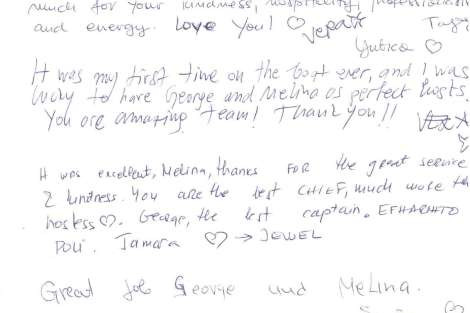 much for your kindness, hospitality, professionalism
and energy. Love you! ♡
Yutica ♡
It was my first time on the boat ever, and I was
lucky to have George and Melina as perfect hosts.
You are amazing team! Thank you!!
It was excellent, Melina, thanks FOR the great service
2 kindness. You are the best CHIEF, much more th
hostess ♡. George, the best captain. EFHARHTO
POLI. Tamara ♡ → JEWEL
Great job George und Melina.